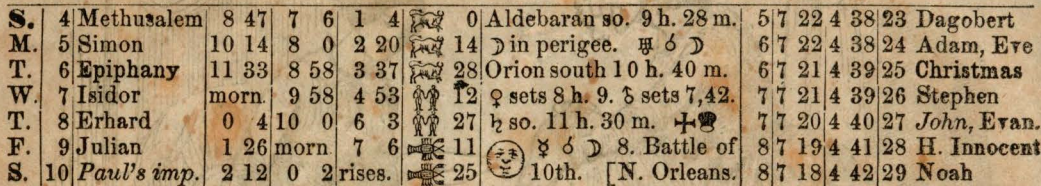 S. 4 Methusalem 8 47 7 6 1 4 0 Aldebaran so. 9 h. 28 m. 5 7 22 4 38 23 Dagobert
M. 5 Simon 10 14 8 0 2 20 14 ☽ in perigee. ♅ ☌ ☽ 6 7 22 4 38 24 Adam, Eve
T. 6 Epiphany 11 33 8 58 3 37 28 Orion south 10 h. 40 m. 6 7 21 4 39 25 Christmas
W. 7 Isidor morn. 9 58 4 53 12 ♀ sets 8 h. 9. sets 7,42. 7 7 21 4 39 26 Stephen
T. 8 Erhard 0 4 10 0 6 3 27 ♄ so. 11 h. 30 m. 7 7 20 4 40 27 John, Evan.
F. 9 Julian 1 26 morn 7 6 11 ☿ ☌ ☽ 8. Battle of 8 7 19 4 41 28 H. Innocent
S. 10 Paul's imp. 2 12 0 2 rises. 25 10th. [N. Orleans. 8 7 18 4 42 29 Noah